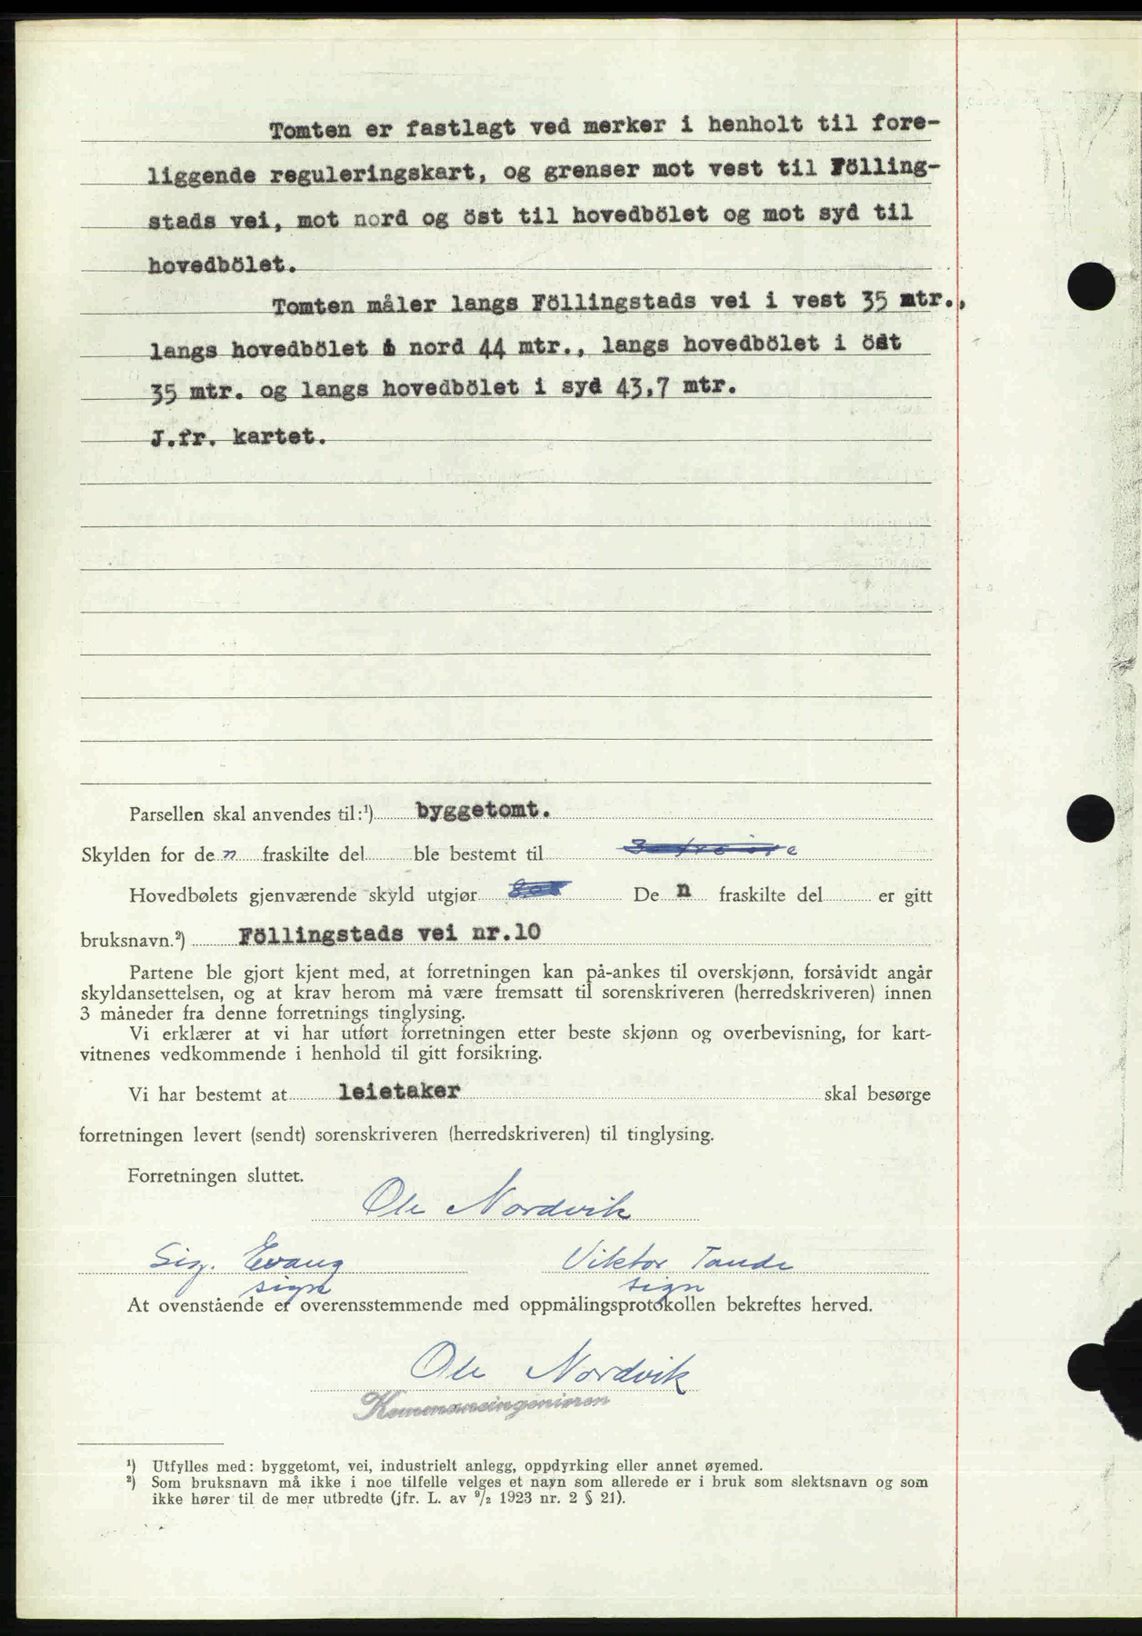 Tomten er fastlagt ved merker i henholt til fore-
liggende reguleringskart, og grenser mot vest til Fölling-
stads vei, mot nord og öst til hovedbölet og mot syd til
hovedbölet.
Tomten måler langs Föllingstads vei i vest 35 mtr.,
langs hovedbölet i nord 44 mtr., langs hovedbölet i öst
35 mtr. og langs hovedbölet i syd 43,7 mtr.
J.fr. kartet.
Parsellen skal anvendes til:¹) byggetomt.
Skylden for de n fraskilte del ble bestemt til
Hovedbølets gjenværende skyld utgjør De n fraskilte del er gitt
bruksnavn.²) Föllingstads vei nr.10
Partene ble gjort kjent med, at forretningen kan på-ankes til overskjønn, forsåvidt angår
skyldansettelsen, og at krav herom må være fremsatt til sorenskriveren (herredskriveren) innen
3 måneder fra denne forretnings tinglysing.
Vi erklærer at vi har utført forretningen etter beste skjønn og overbevisning, for kart-
vitnenes vedkommende i henhold til gitt forsikring.
Vi har bestemt at leietaker skal besørge
forretningen levert (sendt) sorenskriveren (herredskriveren) til tinglysing.
Forretningen sluttet.
Ole Nordvik
Sig. Evang Viktor Tande
sign sign
At ovenstående er overensstemmende med oppmålingsprotokollen bekreftes herved.
Ole Nordvik
Kommuneingeniøren
¹) Utfylles med: byggetomt, vei, industrielt anlegg, oppdyrking eller annet øyemed.
²) Som bruksnavn må ikke i noe tilfelle velges et navn som allerede er i bruk som slektsnavn og som
ikke hører til de mer utbredte (jfr. L. av ⁹/₂ 1923 nr. 2 § 21).